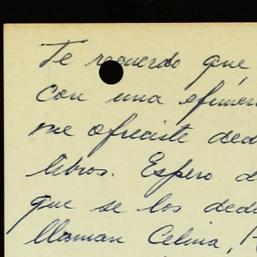 Te recuerdo que
con una
me ofreciste ded
libros. Espero d
que se los dedi
llaman Celina,